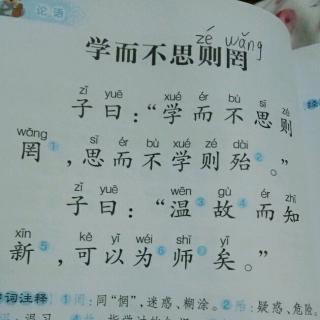 论语
zé wǎng
学而不思则罔
zǐ yuē xué ér bù sī zé
子曰：“学而不思则
wǎng sī ér bù xué zé dài
罔①，思而不学则殆②。”
zǐ yuē wēn gù ér zhī
子曰：“温③故④而知
xīn kě yǐ wéi shī yǐ
新⑤，可以为⑥师⑦矣。”
字词注释 ①罔：同“惘”，迷惑、糊涂。②殆：疑惑、危险。